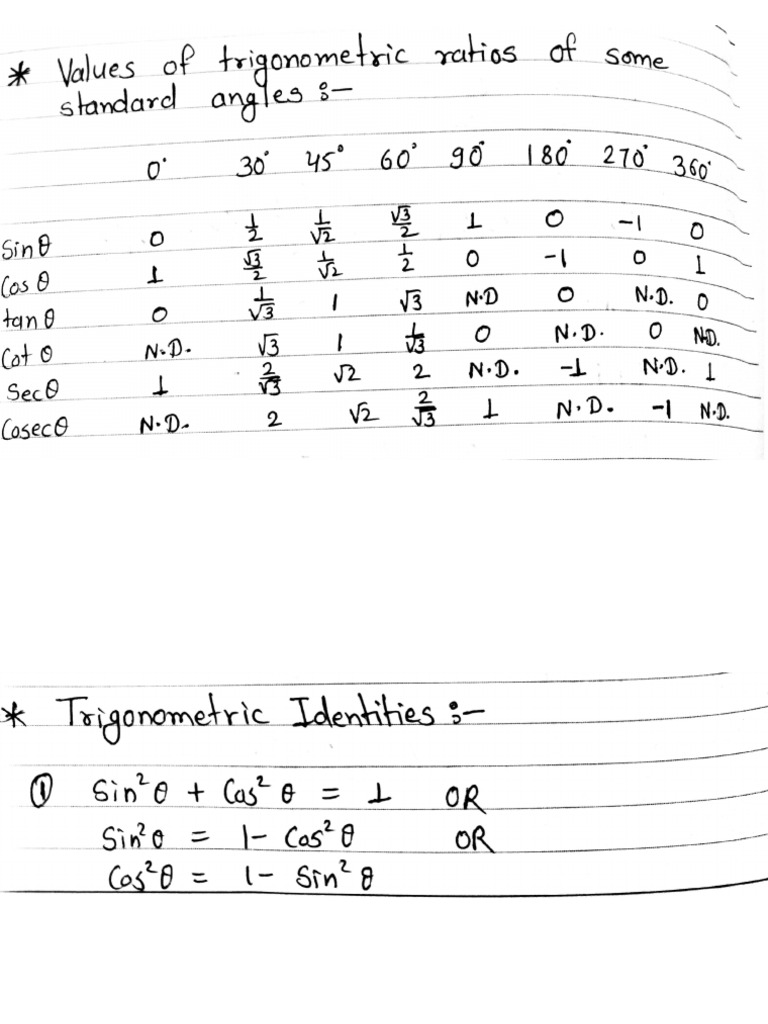 * Values of trigonometric ratios of some
standard angles :-
0° 30° 45° 60° 90° 180° 270° 360°
Sinθ 0 1/2 1/√2 √3/2 1 0 -1 0
Cosθ 1 √3/2 1/√2 1/2 0 -1 0 1
tanθ 0 1/√3 1 √3 N.D 0 N.D. 0
Cotθ N.D. √3 1 1/√3 0 N.D. 0 N.D.
Secθ 1 2/√3 √2 2 N.D. -1 N.D. 1
Cosecθ N.D. 2 √2 2/√3 1 N.D. -1 N.D.
* Trigonometric Identities :-
① Sin²θ + Cos²θ = 1 OR
Sin²θ = 1- Cos²θ OR
Cos²θ = 1- Sin²θ